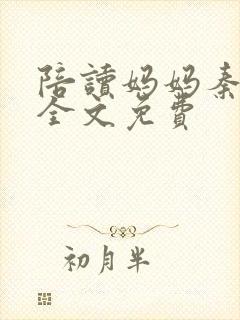 陪讀妈妈秦
全文免費
初月半